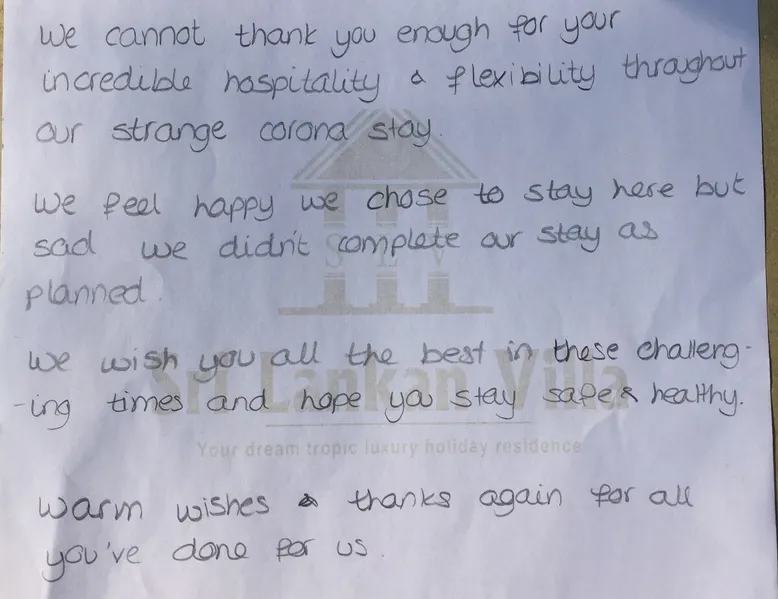 We cannot thank you enough for your
incredible hospitality & flexibility throughout
our strange corona stay.
We feel happy we chose to stay here but
sad we didn't complete our stay as
planned.
SLV
We wish you all the best in these challeng-
Sri Lankan Villa
-ing times and hope you stay safe & healthy.
Your dream tropic luxury holiday residence
Warm wishes & thanks again for all
you've done for us.